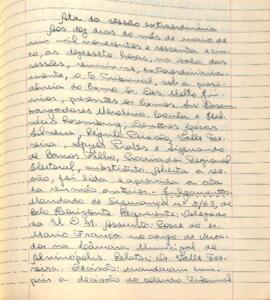 Ata da sessão extraordinária
Aos dez dias do mês de maio de
um mil novecentos e sessenta e cin-
co, às dezessete horas, na sala das
sessões, reuniu-se, extraordinaria-
mente, o E. Tribunal, sob a presi-
dência do Exmo. Sr. Des. Mello
presentes os Exmos. Srs. Desem-
bargadores Costa e
Régulo Peixoto, Valle Fer-
reira, Pratos e Sigmundo
de Barros Filho, Procurador Regional
Eleitoral, substituto. Aberta a ses-
são, foi lida e aprovada a ata
da reunião anterior. Julgamentos:
Mandado de Segurança nº 3/63, de
Belo Horizonte. Requerente: Delegado
da U.D.N. Assunto: Posse do Sr.
Mario França no cargo de Verea-
dor na Câmara Municipal de
Relator: Dr. Valle Fer-
reira. Decisão: mandaram cum-
prir a decisão do colendo Tribunal